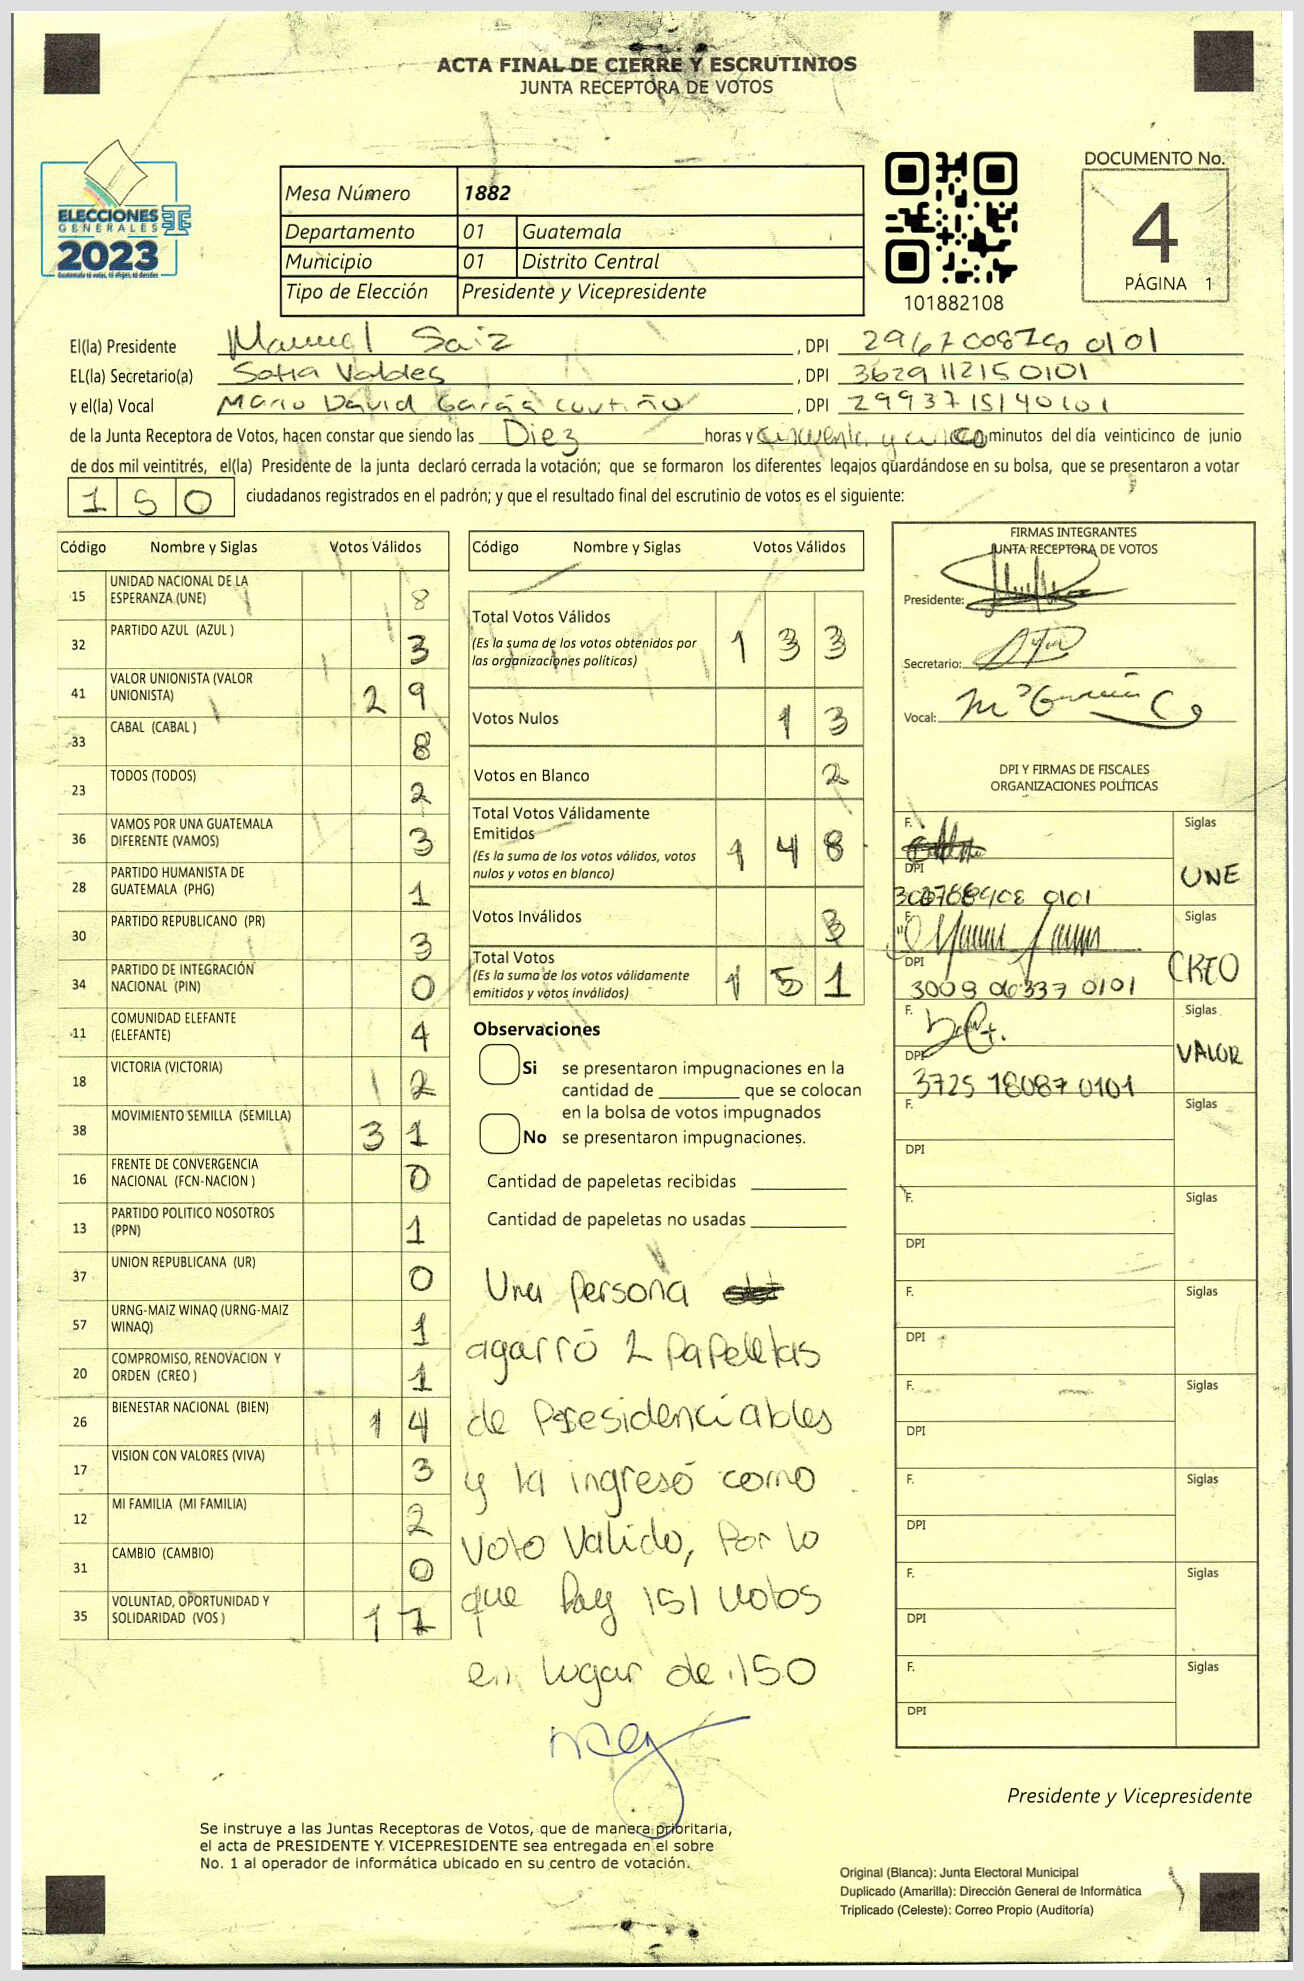 ACTA FINAL DE CIERRE Y ESCRUTINIOS
JUNTA RECEPTORA DE VOTOS
ELECCIONES
GENERALES
2023
Mesa Número 1882
Departamento 01 Guatemala
Municipio 01 Distrito Central
Tipo de Elección Presidente y Vicepresidente
101882108
DOCUMENTO No.
4
PÁGINA 1
El(la) Presidente Manuel Saiz , DPI
EL(la) Secretario(a) Sofia Valdes , DPI 3629 112150101
y el(la) Vocal Mario David García , DPI 2993715140101
de la Junta Receptora de Votos, hacen constar que siendo las Diez horas y cincuenta y cinco minutos del día veinticinco de junio
de dos mil veintitrés, el(la) Presidente de la junta declaró cerrada la votación; que se formaron los diferentes legajos guardándose en su bolsa, que se presentaron a votar
150 ciudadanos registrados en el padrón; y que el resultado final del escrutinio de votos es el siguiente:
Código Nombre y Siglas Votos Válidos
15 UNIDAD NACIONAL DE LA
ESPERANZA (UNE) 8
32 PARTIDO AZUL (AZUL ) 3
41 VALOR UNIONISTA (VALOR
UNIONISTA) 29
33 CABAL (CABAL ) 8
23 TODOS (TODOS) 2
36 VAMOS POR UNA GUATEMALA
DIFERENTE (VAMOS) 3
28 PARTIDO HUMANISTA DE
GUATEMALA (PHG) 1
30 PARTIDO REPUBLICANO (PR) 3
34 PARTIDO DE INTEGRACIÓN
NACIONAL (PIN) 0
11 COMUNIDAD ELEFANTE
(ELEFANTE) 4
18 VICTORIA (VICTORIA) 2
38 MOVIMIENTO SEMILLA (SEMILLA) 31
16 FRENTE DE CONVERGENCIA
NACIONAL (FCN-NACION ) 0
13 PARTIDO POLITICO NOSOTROS
(PPN) 1
37 UNION REPUBLICANA (UR) 0
57 URNG-MAIZ WINAQ (URNG-MAIZ
WINAQ) 1
20 COMPROMISO, RENOVACION Y
ORDEN (CREO ) 1
26 BIENESTAR NACIONAL (BIEN) 14
17 VISION CON VALORES (VIVA) 3
12 MI FAMILIA (MI FAMILIA) 2
31 CAMBIO (CAMBIO) 0
35 VOLUNTAD, OPORTUNIDAD Y
SOLIDARIDAD (VOS ) 17
Código Nombre y Siglas Votos Válidos
Total Votos Válidos 133
(Es la suma de los votos obtenidos por
las organizaciones políticas)
Votos Nulos 13
Votos en Blanco 2
Total Votos Válidamente
Emitidos 148
(Es la suma de los votos válidos, votos
nulos y votos en blanco)
Votos Inválidos 3
Total Votos 151
(Es la suma de los votos válidamente
emitidos y votos inválidos)
Observaciones
Si se presentaron impugnaciones en la
cantidad de ________ que se colocan
en la bolsa de votos impugnados
No se presentaron impugnaciones.
Cantidad de papeletas recibidas
Cantidad de papeletas no usadas
Una persona
agarró 2 papeletas
de Presidenciables
y la ingresó como
voto valido, por lo
que hay 151 votos
en lugar de 150
FIRMAS INTEGRANTES
JUNTA RECEPTORA DE VOTOS
Presidente:
Secretario:
Vocal:
DPI Y FIRMAS DE FISCALES
ORGANIZACIONES POLÍTICAS
F. Siglas
DPI UNE
F. Siglas
DPI CREO
3009 06337 0101
F. Siglas
DPI VALOR
3725 18087 0101
F. Siglas
DPI
F. Siglas
DPI
F. Siglas
DPI
F. Siglas
DPI
F. Siglas
DPI
F. Siglas
DPI
F. Siglas
DPI
Presidente y Vicepresidente
Se instruye a las Juntas Receptoras de Votos, que de manera prioritaria,
el acta de PRESIDENTE Y VICEPRESIDENTE sea entregada en el sobre
No. 1 al operador de informática ubicado en su centro de votación.
Original (Blanca): Junta Electoral Municipal
Duplicado (Amarilla): Dirección General de Informática
Triplicado (Celeste): Correo Propio (Auditoría)